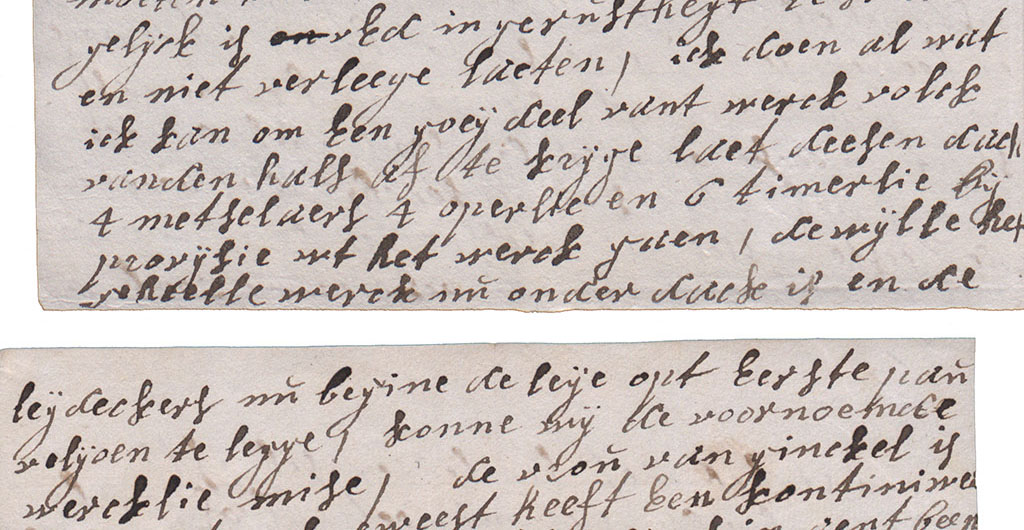 gelyck is en ued in gerustheyt
en niet verleege laeten, ick doen al wat
ick kan om een goey deel vant werck volck
vanden hals af te kryge laet deesen dach
4 metselaers 4 operlie en 6 timerlie by
provysie wt het werck gaen, dewylle het
geheelle werck nu onder dack is en de
leydeckers nu begine de leye opt eerste pau
velyoen te legge, konne wy de voornoemde
wercklie mise, de vrou van ginckel is
geweest heeft een kontiniwe